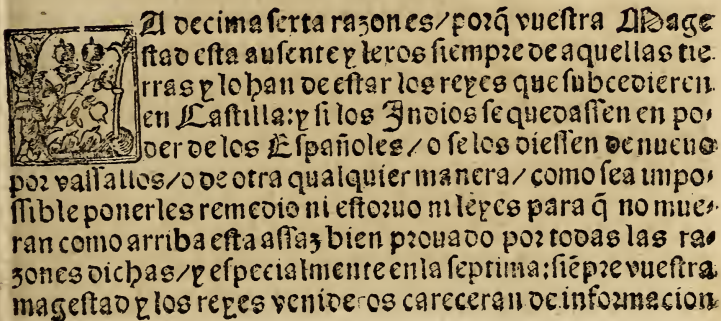 LA decima sexta razon es/porq̃ vuestra Mage
stad esta ausente y lexos siempre de aquellas tie
rras y lo han de estar los reyes que subcedieren
en Castilla: y si los Indios se quedassen en po-
der de los Españoles/o se los diessen de nueuo
por vassallos/o de otra qualquier manera/como sea impo-
ssible ponerles remedio ni estoruo ni leyes para q̃ no mue-
ran como arriba esta assaz bien prouado por todas las ra-
zones dichas/y especialmente enla septima: siẽpre vuestra
magestad y los reyes venideros careceran de informacion